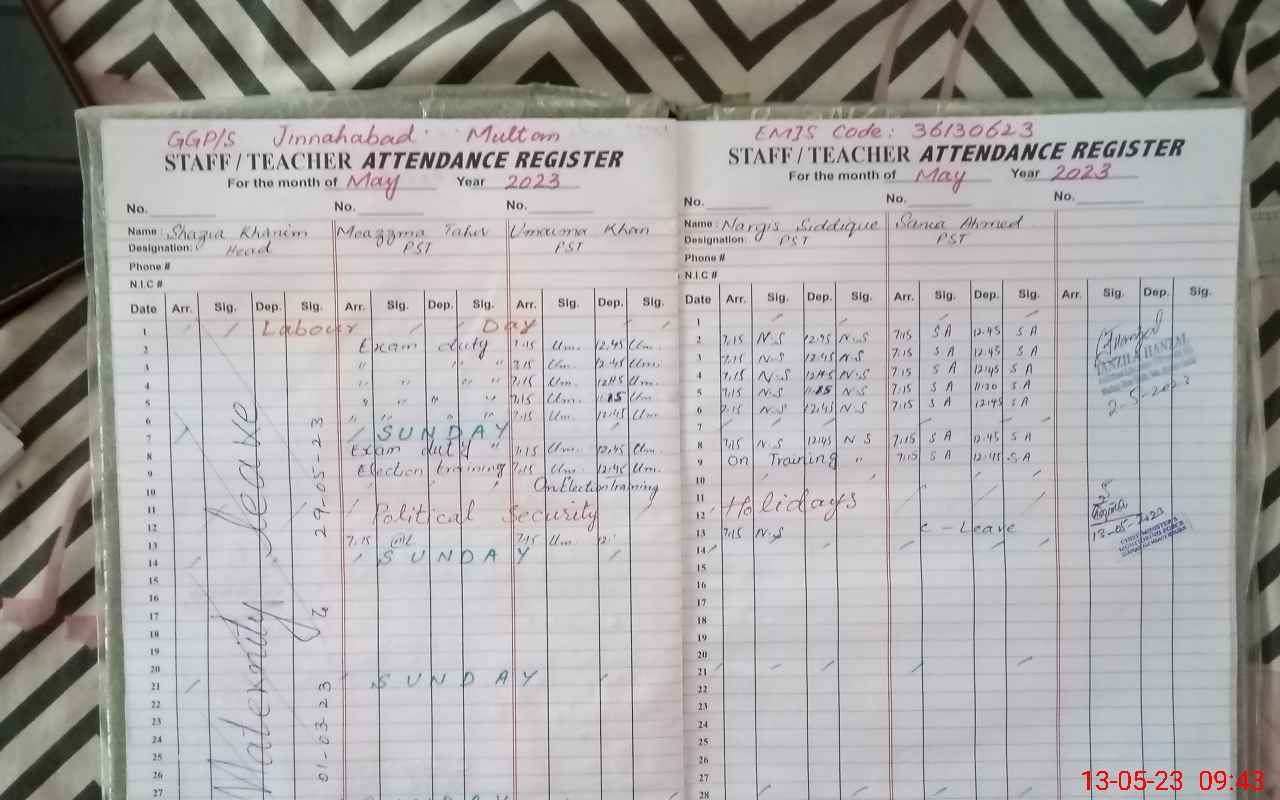 GGP/S Jinnahabad Multan
STAFF / TEACHER ATTENDANCE REGISTER
For the month of May Year 2023
No. No. No.
Name : Shazia Khanim Moazzma Tahir Umaima Khan
Designation: Head PST PST
Phone #
N.I.C #
Date Arr. Sig. Dep. Sig. Arr. Sig. Dep. Sig. Arr. Sig. Dep. Sig.
1 Labour Day
2 Exam duty 7:15 Um. 12:45 Um.
3 " " " 7:15 Um. 12:45 Um.
4 " " " " 7:15 Um. 12:45 Um.
5 " " " " 7:15 Um. 11:15 Um.
6 " " " " 7:15 Um. 12:45 Um.
7 SUNDAY
8 Exam duty " 7:15 Um. 12:45 Um.
9 Election training 7:15 Um. 12:45 Um.
10 " " On Election Training
11
12 Political Security
13 7:15 7:15 Um. 12:
14 SUNDAY
15
16
17
18
19
20
21 SUNDAY
22
23
24
25
26
27
Maternity Leave
01-03-23 To 29-05-23
EMIS Code: 36130623
STAFF / TEACHER ATTENDANCE REGISTER
For the month of May Year 2023
No. No. No.
Name : Nargis Siddique Sania Ahmed
Designation: PST PST
Phone #
N.I.C #
Date Arr. Sig. Dep. Sig. Arr. Sig. Dep. Sig. Arr. Sig. Dep. Sig.
1
2 7:15 N.S 12:45 N.S 7:15 S A 12:45 S A
3 7:15 N.S 12:45 N.S 7:15 S A 12:45 S A
4 7:15 N.S 12:45 N.S 7:15 S A 12:45 S A
5 7:15 N.S 11:15 N.S 7:15 S A 11:30 S A
6 7:15 N.S 12:45 N.S 7:15 S A 12:45 S A
7
8 7:15 N.S 12:45 N S 7:15 S A 12:45 S A
9 On Training " 7:15 S A 12:45 S A
10
11
12 Holidays
13 7:15 N.S C - Leave
14
15
16
17
18
19
20
21
22
23
24
25
26
27
28
TANZILA HANZAL
2-5-2023
13-05-2023
CHIEF MINISTER'S
MONITORING FORCE
13-05-23 09:43